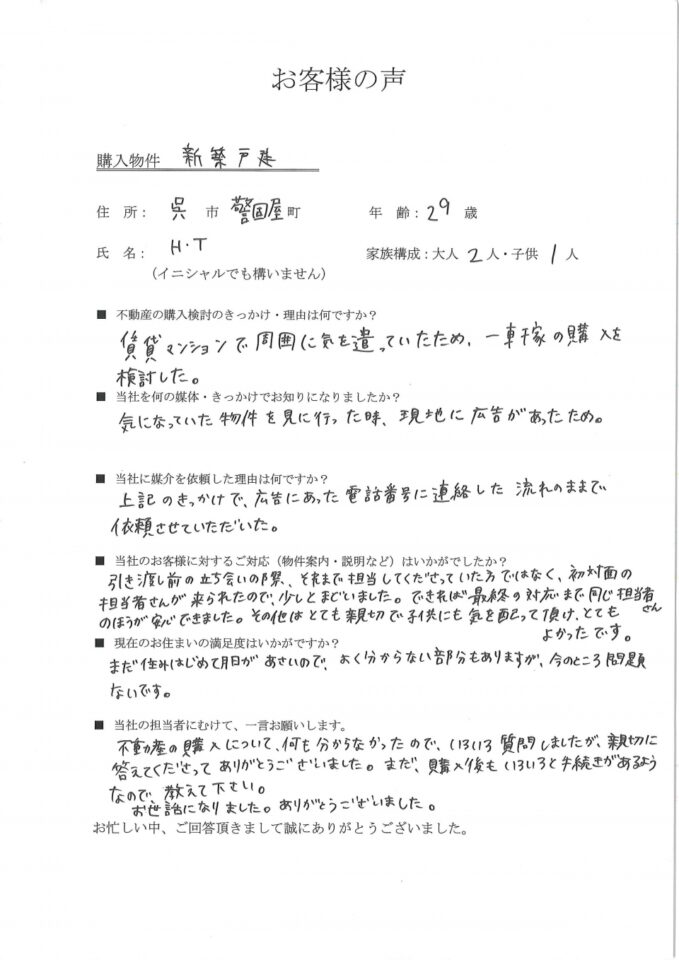 お客様の声
購入物件 新築戸建
住 所： 呉 市 警固屋町 年 齢：29 歳
氏 名： H・T 家族構成：大人 2人・子供 1人
（イニシャルでも構いません）
■ 不動産の購入検討のきっかけ・理由は何ですか？
賃貸マンションで周囲に気を遣っていたため、一軒家の購入を
検討した。
■ 当社を何の媒体・きっかけでお知りになりましたか？
気になっていた物件を見に行った時、現地に広告があったため。
■ 当社に媒介を依頼した理由は何ですか？
上記のきっかけで、広告にあった電話番号に連絡した流れのままで
依頼させていただいた。
■ 当社のお客様に対するご対応（物件案内・説明など）はいかがでしたか？
引き渡し前の立ち会いの際、それまで担当してくださっていた方ではなく、初対面の
担当者さんが来られたので、少しとまどいました。できれば最終の対応まで同じ担当者さん
のほうが安心できました。その他はとても親切で子供にも気を配って頂け、とても
よかったです。
■ 現在のお住まいの満足度はいかがですか？
まだ住みはじめて月日があさいので、よく分からない部分もありますが、今のところ問題
ないです。
■ 当社の担当者にむけて、一言お願いします。
不動産の購入について、何も分からなかったので、いろいろ質問しましたが、親切に
答えてくださってありがとうございました。まだ、購入後もいろいろと手続きがあるよう
なので、教えて下さい。
お世話になりました。ありがとうございました。
お忙しい中、ご回答頂きまして誠にありがとうございました。